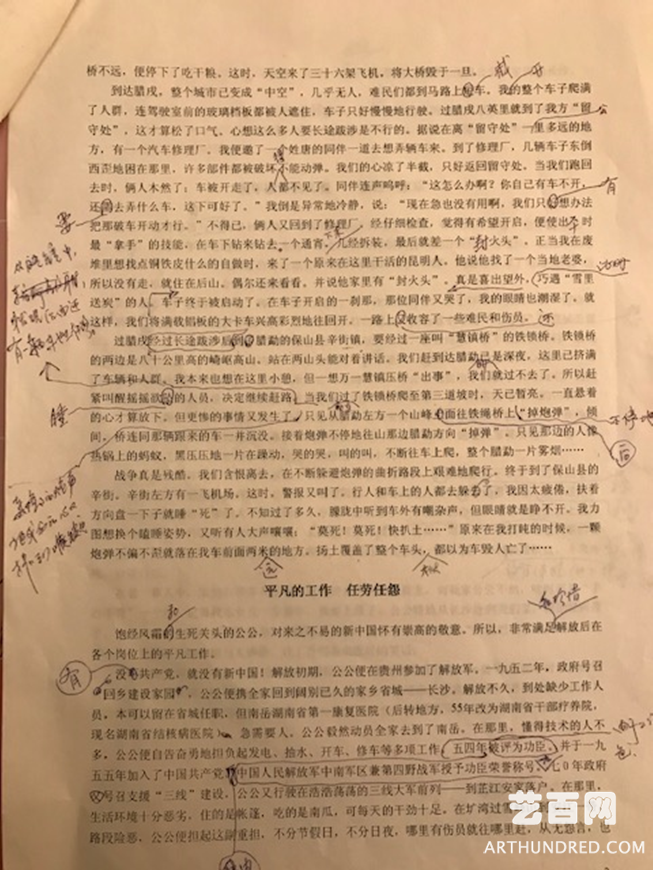 桥不远，便停下了吃干粮。这时，天空来了三十六架飞机，将大桥毁于一旦。
到达腊戌，整个城市已变成“中空”，几乎无人，难民们都到马路上车。我的整个车子爬满
了人群，连驾驶室前的玻璃档板都被人遮住，车子只好慢慢地行驶。过腊戌八英里就到了我方“留
守处”，这才算松了口气。心想这么多人要长途跋涉是不行的。据说在离“留守处”一里多远的地
方，有一个汽车修理厂。我便邀了一个姓唐的同伴一道去想弄辆车来。到了修理厂，几辆车子东倒
西歪地困在那里，许多部件都被破坏不能动弹。我们的心凉了半截，只好返回留守处。当我们跑回
去时，俩人木然了：车被开走了，人都不见了。同伴连声呜呼：“这怎么办啊？你自己有车不开，
还去弄什么车，这下可好了。”我倒是异常地冷静，说：“现在急也没有用啊，我们只想办法
把那破车开动才行。”不得已，俩人又回到了修理厂。经仔细检查，觉得有希望开启，便使出
最“拿手”的技能，在车下钻来钻去一个通宵，几经拆装，最后就差一个“封火头”。正当我在废
堆里想找点铜铁皮什么的自做时，来了一个原来在这里干活的昆明人，他说他找了一个当地老婆，
所以没有走，就住在后山。偶尔还来看看。并说他家里有“封火头”。真是喜出望外，巧遇“雪里
送炭”的人，车子终于被启动了。在车子开启的一刹那，那位同伴又哭了，我的眼睛也潮湿了，就
这样，我们将满载铝板的大卡车兴高彩烈地往回开。一路上又收容了一些难民和伤员。
过腊戌经过长途跋涉后到腊勐的保山县辛街镇，要经过一座叫“慧镇桥”的铁锁桥。铁锁桥
的两边是八十公里高的崎岖高山。站在两山头能对着讲话。我们赶到达腊勐已是深夜，这里已挤满
了车辆和人群。我本来也想在这里小憩，但一想万一慧镇压桥“出事”，我们就过不去了。所以赶
紧叫醒摇摇欲的人员，决定继续赶路。当我们过了铁镇桥爬至第三道坡时，天已暂亮。一直悬着
的心才算放下。但更惨的事情又发生了。只见从腊勐左方一个山峰面往铁绳桥上“掉炮弹”，倾
间，桥连同那辆蹬来的车一并沉没。接着炮弹不停地往山那边腊勐方向“掉弹”。只见那边的人像
热锅上的蚂蚁，黑压压地一片在蹿动，哭的哭，叫的叫，不断往车上爬，整个腊勐一片雾烟……
战争真是残酷。我们含恨离去，在不断躲避炮弹的曲折路段上艰难地爬行。终于到了保山县的
辛街。辛街左方有一飞机场，这时，警报又叫了。行人和车上的人都去躲了。我因太疲倦，扶着
方向盘一下子就睡“死”了。不知过了多久，朦胧中听到车外有嘈杂声，但眼睛就是睁不开。我力
图想换个瞌睡姿势，又听有人大声嚷嚷：“莫死！莫死！快扒土……”原来在我打盹的时候，一颗
炮弹不偏不歪就落在我车前面两米的地方，扬土覆盖了整个车头，都以为车毁人亡了……
平凡的工作 任劳任怨
饱经风霜的生死关头的公公，对来之不易的新中国怀有崇高的敬意。所以，非常满足解放后在
各个岗位上的平凡工作。
没共产党，就没有新中国！解放初期，公公便在贵州参加了解放军。一九五二年，政府号召
“回乡建设家园”，公公便携全家回到阔别已久的家乡省城——长沙。解放不久，到处缺少工作人
员，本可以留在省城任职，但南岳湖南省第一康复医院（后转地方，55年改为湖南省干部疗养院，
现名湖南省结核病医院）急需要人，公公毅然动员全家去到了南岳。在那里，懂得技术的人不
多，公公便自告奋勇地担负起发电、抽水、开车、修车等多项工作，五四年被评为功臣，并于一九
五五年加入了中国共产党，中国人民解放军中南军区兼第四野战军授予功臣荣誉称号，七0年政府
号召支援“三线”建设，公公又行驶在浩浩荡荡的三线大军前列——到芷江安家落户。在那里，
生活环境十分恶劣，住的是帐篷，吃的是南瓜，可每天的干劲十足。在圹湾过雪
路段险恶，公公便担起这副重担，不分节假日，不分日夜，哪里有伤员就往哪里赶，从无怨言，也
艺百网
ARTHUNDRED.COM